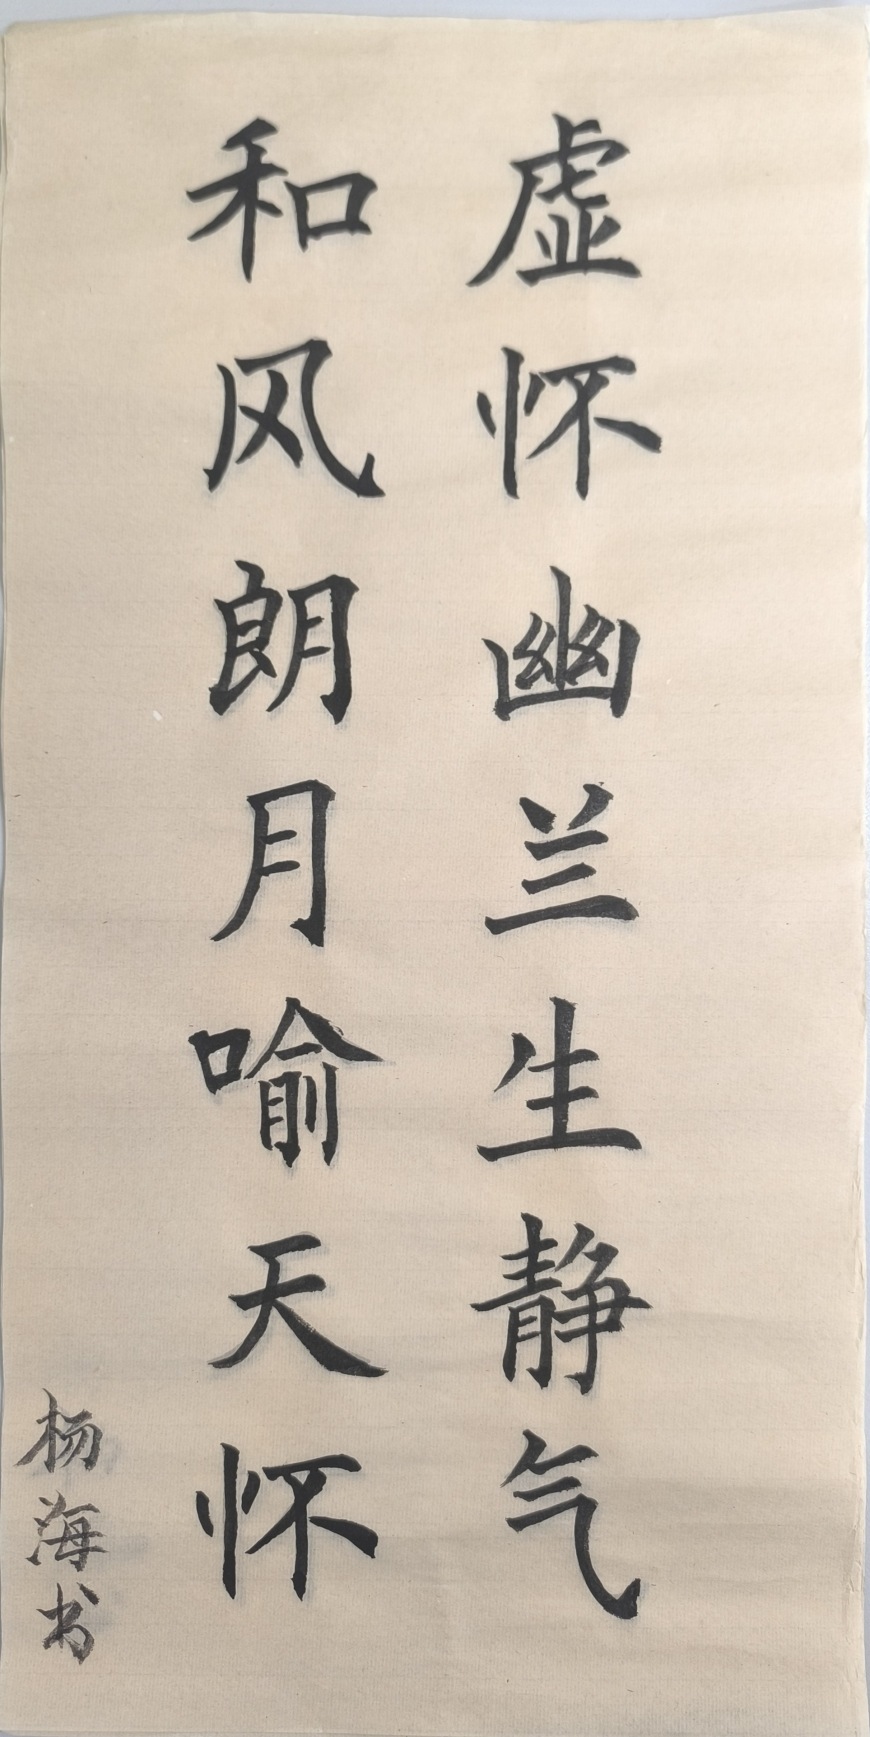 虚怀幽兰生静气
和风朗月喻天怀
杨海书